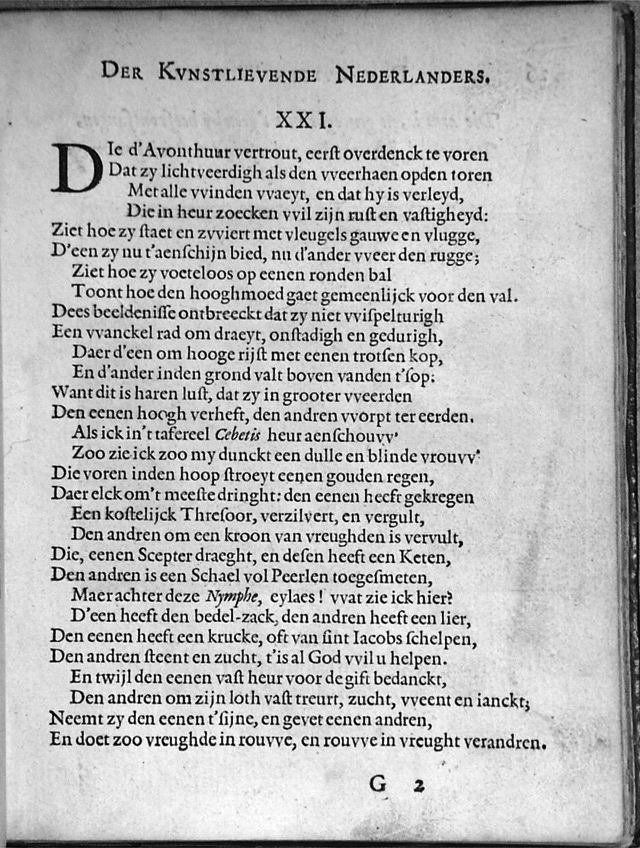 DER KVNSTLIEVENDE NEDERLANDERS.
XXI.
DIe d'Avonthuur vertrout, eerſt overdenck te voren
Dat zy lichtveerdigh als den vveerhaen opden toren
Met alle vvinden vvaeyt, en dat hy is verleyd,
Die in heur zoecken vvil zijn ruſt en vaſtigheyd:
Ziet hoe zy ſtaet en zvviert met vleugels gauwe en vlugge,
D'een zy nu t'aenſchijn bied, nu d'ander vveer den rugge;
Ziet hoe zy voeteloos op eenen ronden bal
Toont hoe den hooghmoed gaet gemeenlijck voor den val.
Dees beeldeniſſe ontbreeckt dat zy niet vviſpelturigh
Een vvanckel rad om draeyt, onſtadigh en gedurigh,
Daer d'een om hooge rijſt met eenen trotſen kop,
En d'ander inden grond valt boven vanden t'ſop:
Want dit is haren luſt, dat zy in grooter vveerden
Den eenen hoogh verheft, den andren vvorpt ter eerden.
Als ick in't tafereel Cebetis heur aenſchouvv'
Zoo zie ick zoo my dunckt een dulle en blinde vrouvv'
Die voren inden hoop ſtroeyt eenen gouden regen,
Daer elck om't meeſte dringht: den eenen heeft gekregen
Een koſtelijck Threſoor, verzilvert, en vergult,
Den andren om een kroon van vreughden is vervult,
Die, eenen Scepter draeght, en deſen heeft een Keten,
Den andren is een Schael vol Peerlen toegeſmeten,
Maer achter deze Nymphe, eylaes! vvat zie ick hier?
D'een heeft den bedel-zack, den andren heeft een lier,
Den eenen heeft een krucke, oft van ſint Iacobs ſchelpen,
Den andren ſteent en zucht, t'is al God vvil u helpen.
En twijl den eenen vaſt heur voor de gift bedanckt,
Den andren om zijn loth vaſt treurt, zucht, vveent en ianckt;
Neemt zy den eenen t'ſijne, en gevet eenen andren,
En doet zoo vreughde in rouvve, en rouvve in vreught verandren.
G 2